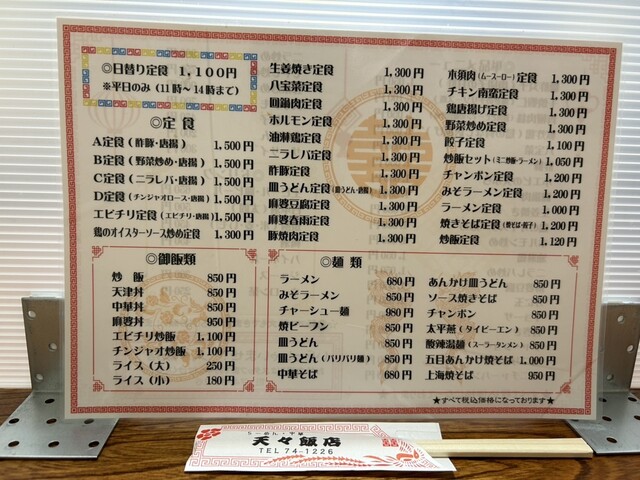 ◎日替り定食 1,100円
※平日のみ(11時〜14時まで)
◎定食
A定食(酢豚・唐揚) 1,500円
B定食(野菜炒め・唐揚) 1,500円
C定食(ニラレバ・唐揚) 1,500円
D定食(チンジャオロース・唐揚) 1,500円
エビチリ定食(エビチリ・唐揚) 1,500円
鶏のオイスターソース炒め定食 1,300円
生姜焼き定食 1,300円
八宝菜定食 1,300円
回鍋肉定食 1,300円
ホルモン定食 1,300円
油淋鶏定食 1,300円
ニラレバ定食 1,300円
酢豚定食 1,300円
皿うどん定食(皿うどん・唐揚) 1,300円
麻婆豆腐定食 1,300円
麻婆春雨定食 1,300円
豚焼肉定食 1,300円
木須肉(ムースーロー)定食 1,300円
チキン南蛮定食 1,300円
鶏唐揚げ定食 1,300円
野菜炒め定食 1,300円
餃子定食 1,100円
炒飯セット(ミニ炒飯・ラーメン) 1,050円
チャンポン定食 1,200円
みそラーメン定食 1,200円
ラーメン定食 1,000円
焼きそば定食(焼そば・餃子) 1,200円
炒飯定食 1,120円
◎御飯類
炒飯 850円
天津丼 850円
中華丼 850円
麻婆丼 950円
エビチリ炒飯 1,100円
チンジャオ炒飯 1,100円
ライス(大) 250円
ライス(小) 180円
◎麺類
ラーメン 680円
みそラーメン 850円
チャーシュー麺 980円
焼ビーフン 850円
皿うどん 850円
皿うどん(バリバリ麺) 850円
中華そば 680円
あんかけ皿うどん 850円
ソース焼きそば 850円
チャンポン 850円
太平燕(タイピーエン) 850円
酸辣湯麺(スーラータンメン) 850円
五目あんかけ焼そば 1,000円
上海焼そば 950円
★すべて税込価格になっております★
らーめん・中華
天々飯店
TEL 74-1226